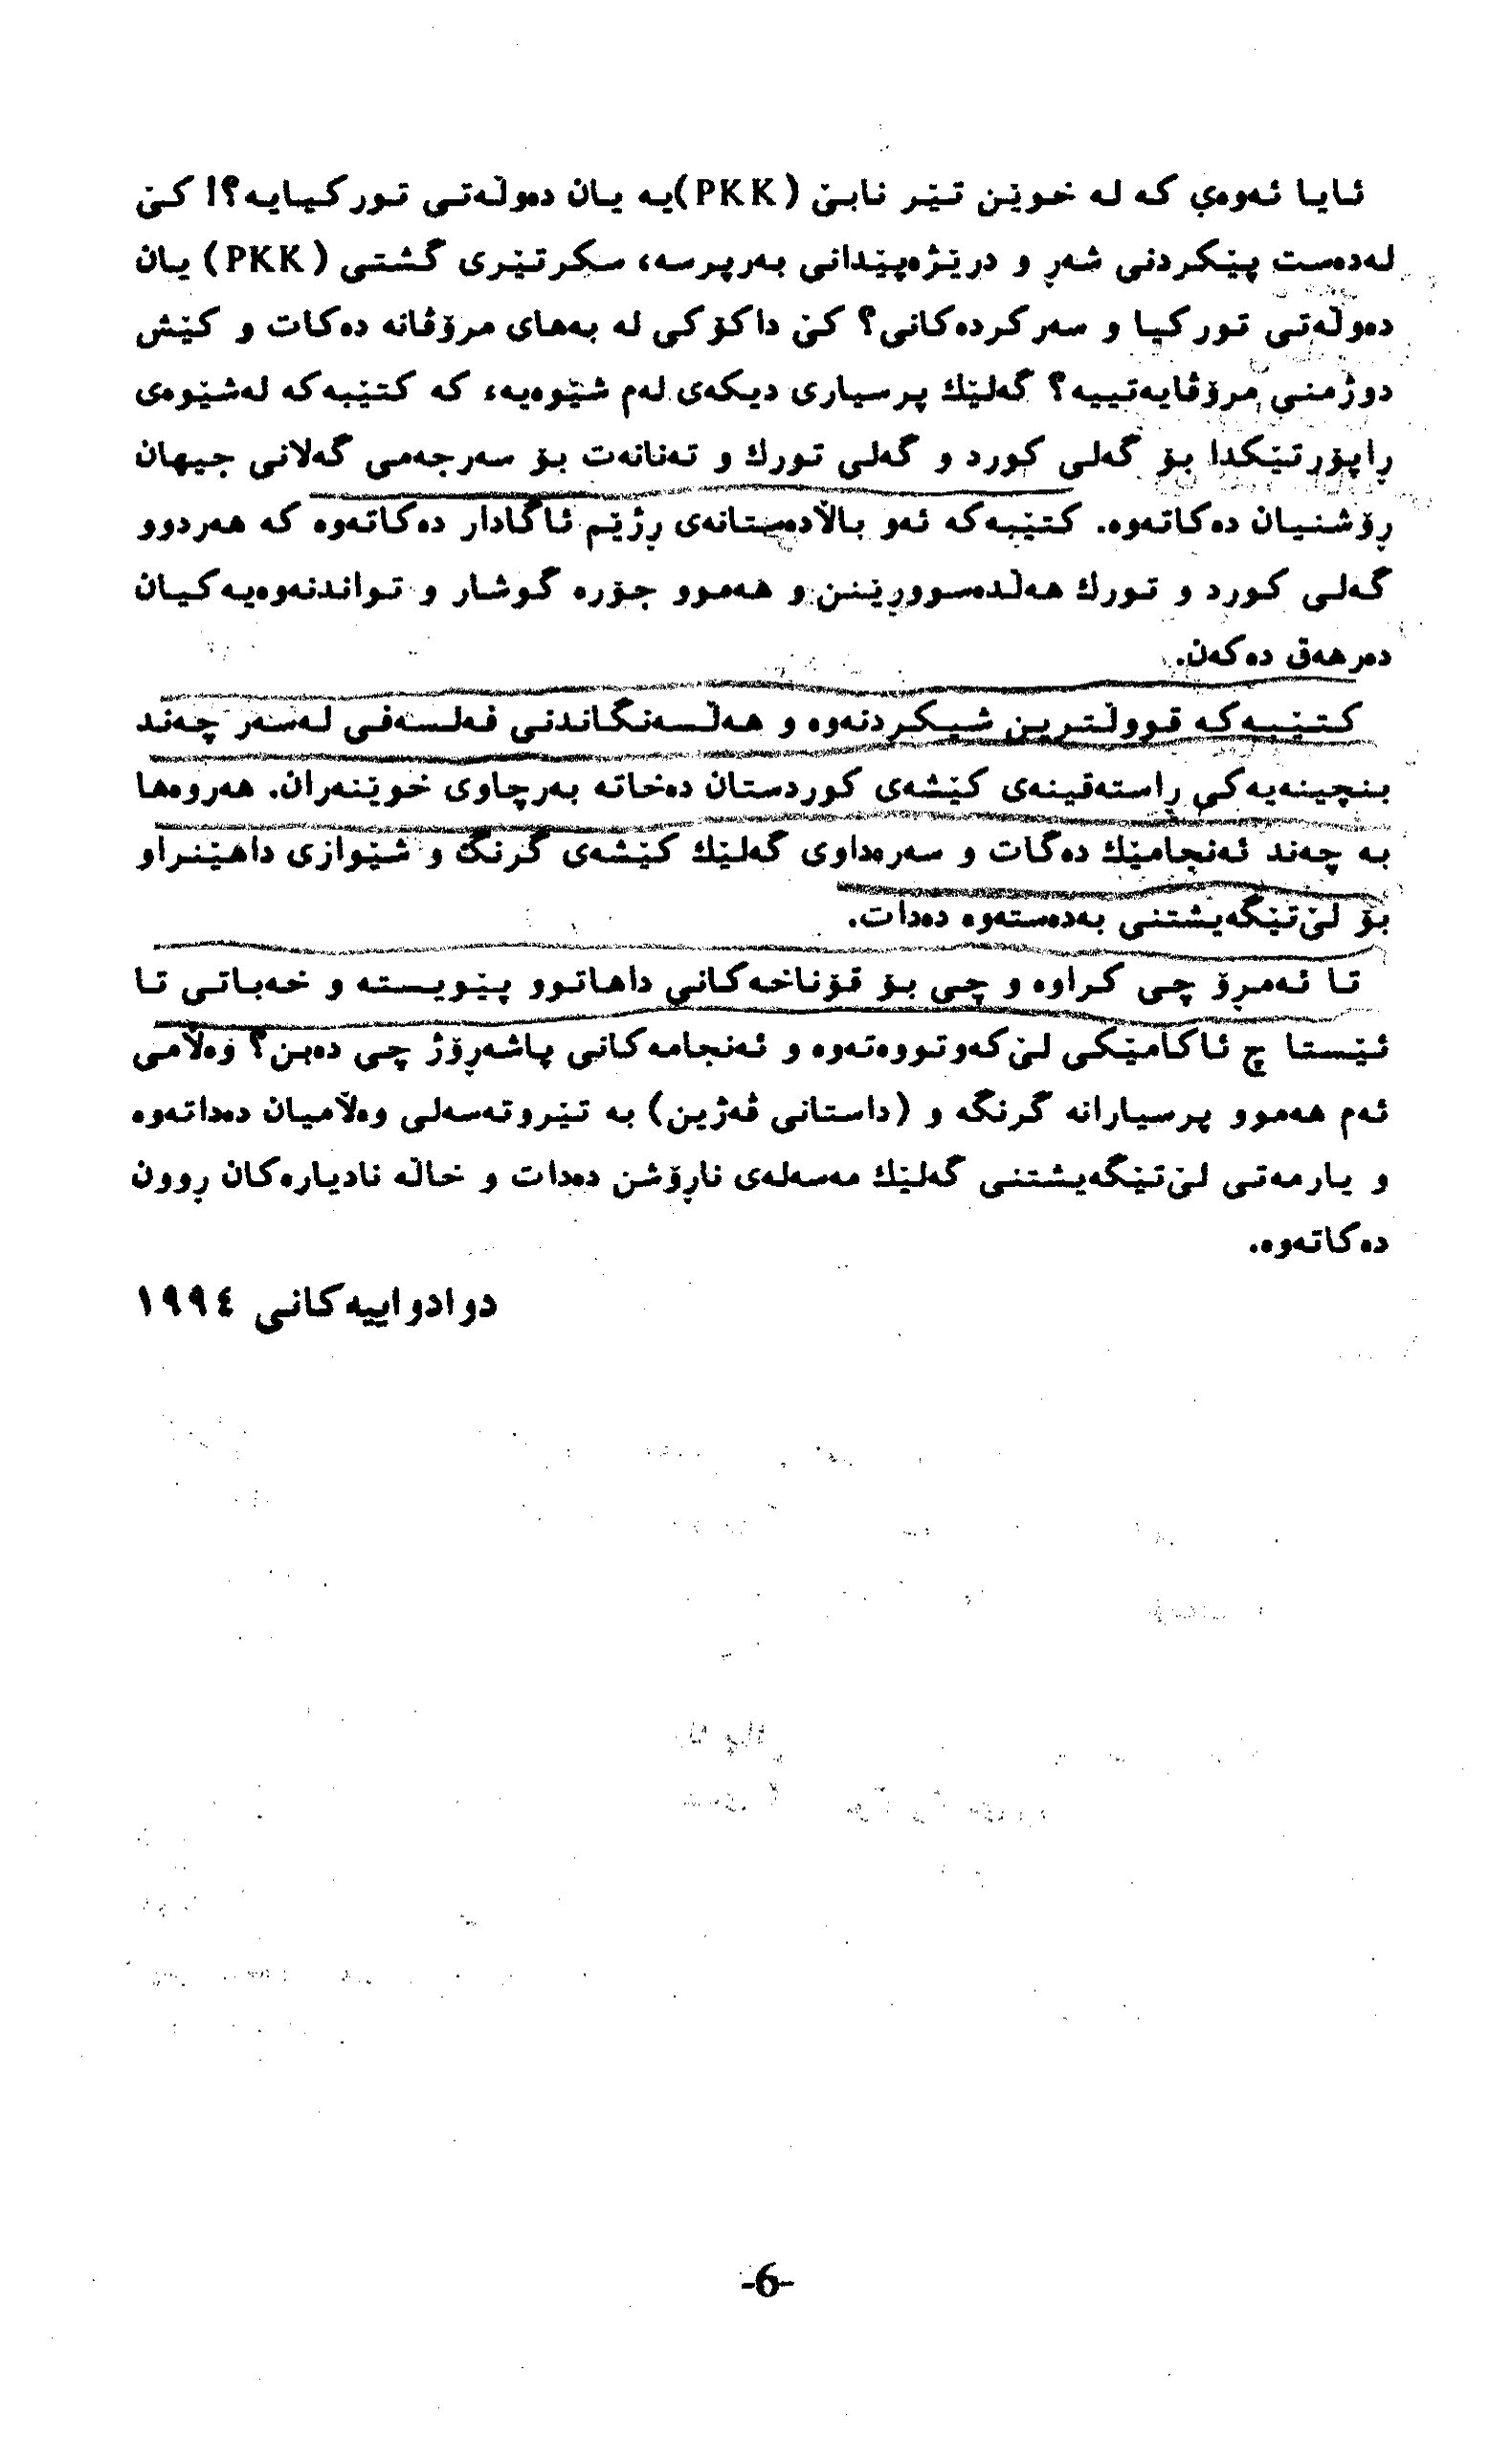 ئایا ئەوەی کە لە خوێن تێر نابێ (PKK)یە یان دەوڵەتی تورکیایە؟! کێ
لەدەست پێکردنی شەڕ و درێژەپێدانی بەرپرسە، سکرتێری گشتی (PKK) یان
دەوڵەتی تورکیا و سەرکردەکانی؟ کێ داکۆکی لە بەهای مرۆڤانە دەکات و کێش
دوژمنی مرۆڤایەتییە؟ گەلێك پرسیاری دیکەی لەم شێوەیە، کە کتێبەکە لەشێوەی
ڕاپۆرتێکدا بۆ گەلی کورد و گەلی تورك و تەنانەت بۆ سەرجەمی گەلانی جیهان
ڕۆشنیان دەکاتەوە. کتێبەکە ئەو باڵادەستانەی ڕژێم ئاگادار دەکاتەوە کە هەردوو
گەلی کورد و تورك هەڵدەسووڕێنن و هەموو جۆرە گوشار و تواندنەوەیەکیان
دەرهەق دەکەن.
کتێبەکە قووڵترین شیکردنەوە و هەڵسەنگاندنی فەلسەفی لەسەر چەند
بنچینەیەکی ڕاستەقینەی کێشەی کوردستان دەخاتە بەرچاوی خوێنەران. هەروەها
بە چەند ئەنجامێك دەگات و سەرەداوی گەلێك کێشەی گرنگ و شێوازی داهێنراو
بۆ لێ‌تێگەیشتنی بەدەستەوە دەدات.
تا ئەمڕۆ چی کراوە و چی بۆ قۆناخەکانی داهاتوو پێویستە و خەباتی تا
ئێستا چ ئاکامێکی لێ‌کەوتووەتەوە و ئەنجامەکانی پاشەڕۆژ چی دەبن؟ وەڵامی
ئەم هەموو پرسیارانە گرنگە و (داستانی ڤەژین) بە تێروتەسەلی وەڵامیان دەداتەوە
و یارمەتی لێ‌تێگەیشتنی گەلێك مەسەلەی ناڕۆشن دەدات و خاڵە نادیارەکان ڕوون
دەکاتەوە.
دوادواییەکانی ١٩٩٤
-6-